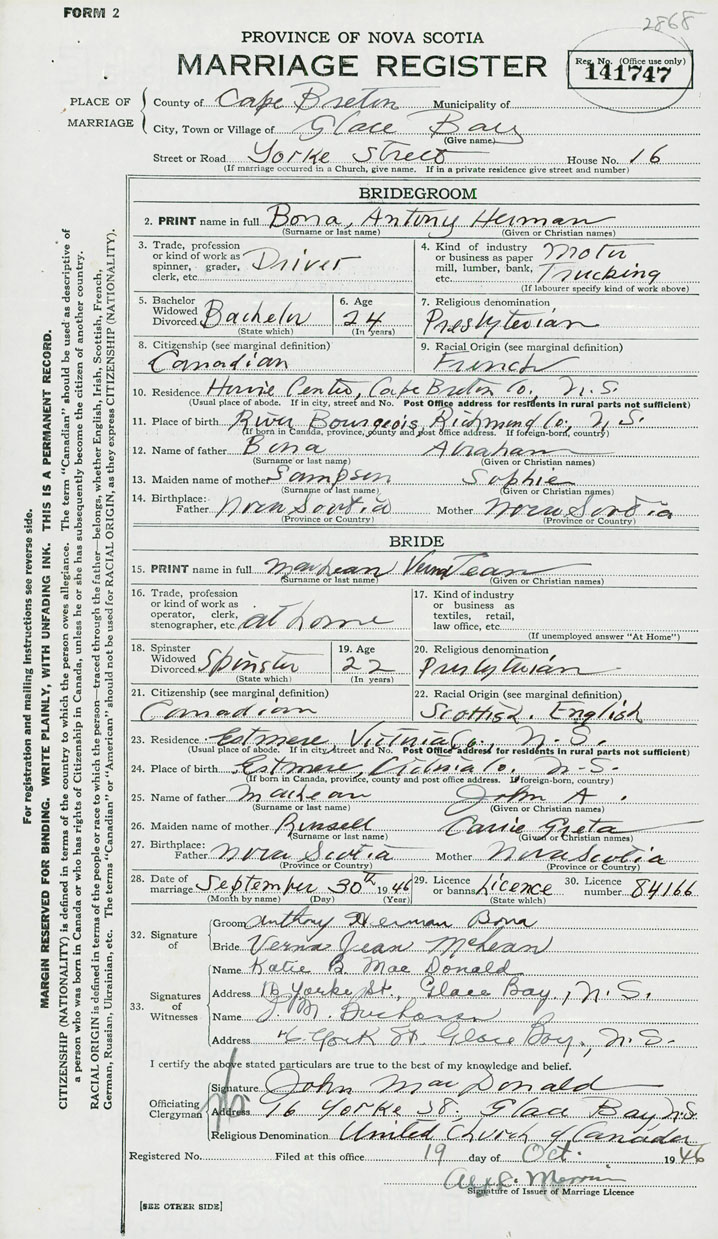 FORM 2
2868
PROVINCE OF NOVA SCOTIA
MARRIAGE REGISTER
Reg. No. (Office use only)
141747
PLACE OF MARRIAGE
County of Cape Breton Municipality of
City, Town or Village of Glace Bay
(Give name)
Street or Road Yorke Street House No. 16
(If marriage occurred in a Church, give name. If in a private residence give street and number)
BRIDEGROOM
2. PRINT name in full Bona, Antony Herman
(Surname or last name) (Given or Christian names)
3. Trade, profession or kind of work as spinner, grader, clerk, etc. Driver
4. Kind of industry or business as paper mill, lumber, bank, etc. Motor Trucking
(If labourer specify kind of work above)
5. Bachelor Widowed Divorced Bachelor
(State which)
6. Age 24
(In years)
7. Religious denomination
Presbyterian
8. Citizenship (see marginal definition)
Canadian
9. Racial Origin (see marginal definition)
French
10. Residence Howie Centre, Cape Breton Co., N.S.
(Usual place of abode. If in city, street and No. Post Office address for residents in rural parts not sufficient)
11. Place of birth River Bourgeois, Richmond Co., N.S.
(If born in Canada, province, county and post office address. If foreign-born, country)
12. Name of father Bona Abraham
(Surname or last name) (Given or Christian names)
13. Maiden name of mother Sampson Sophie
(Surname or last name) (Given or Christian names)
14. Birthplace: Father Nova Scotia Mother Nova Scotia
(Province or Country) (Province or Country)
BRIDE
15. PRINT name in full MacLean Verna Jean
(Surname or last name) (Given or Christian names)
16. Trade, profession or kind of work as operator, clerk, stenographer, etc. at home
17. Kind of industry or business as textiles, retail, law office, etc.
(If unemployed answer "At Home")
18. Spinster Widowed Divorced Spinster
(State which)
19. Age 22
(In years)
20. Religious denomination
Presbyterian
21. Citizenship (see marginal definition)
Canadian
22. Racial Origin (see marginal definition)
Scottish. English
23. Residence Estmere, Victoria Co., N.S.
(Usual place of abode. If in city, street and No. Post Office address for residents in rural parts not sufficient)
24. Place of birth Estmere, Victoria Co. N.S.
(If born in Canada, province, county and post office address. If foreign-born, country)
25. Name of father MacLean John A.
(Surname or last name) (Given or Christian names)
26. Maiden name of mother Russell Carrie Greta
(Surname or last name) (Given or Christian names)
27. Birthplace: Father Nova Scotia Mother Nova Scotia
(Province or Country) (Province or Country)
28. Date of marriage September 30th 1946
(Month by name) (Day) (Year)
29. Licence or banns Licence
(State which)
30. Licence number 84166
32. Signature of
Groom Anthony Herman Bona
Bride Verna Jean McLean
33. Signatures of Witnesses
Name Katie B. MacDonald
Address 16 Yorke St., Glace Bay, N.S.
Name J. M. Buchanan
Address York St. Glace Bay, N.S.
I certify the above stated particulars are true to the best of my knowledge and belief.
Officiating Clergyman
Signature John MacDonald
Address 16 Yorke St. Glace Bay N.S.
Religious Denomination United Church of Canada
Registered No. Filed at this office 19 day of Oct. 1946
Signature of Issuer of Marriage Licence
[SEE OTHER SIDE]
For registration and mailing instructions see reverse side.
MARGIN RESERVED FOR BINDING. WRITE PLAINLY, WITH UNFADING INK. THIS IS A PERMANENT RECORD.
CITIZENSHIP (NATIONALITY) is defined in terms of the country to which the person owes allegiance. The term "Canadian" should be used as descriptive of
a person who was born in Canada or who has rights of Citizenship in Canada, unless he or she has subsequently become the citizen of another country.
RACIAL ORIGIN is defined in terms of the people or race to which the person—traced through the father—belongs, whether English, Irish, Scottish, French,
German, Russian, Ukrainian, etc. The terms "Canadian" or "American" should not be used for RACIAL ORIGIN, as they express CITIZENSHIP (NATIONALITY).